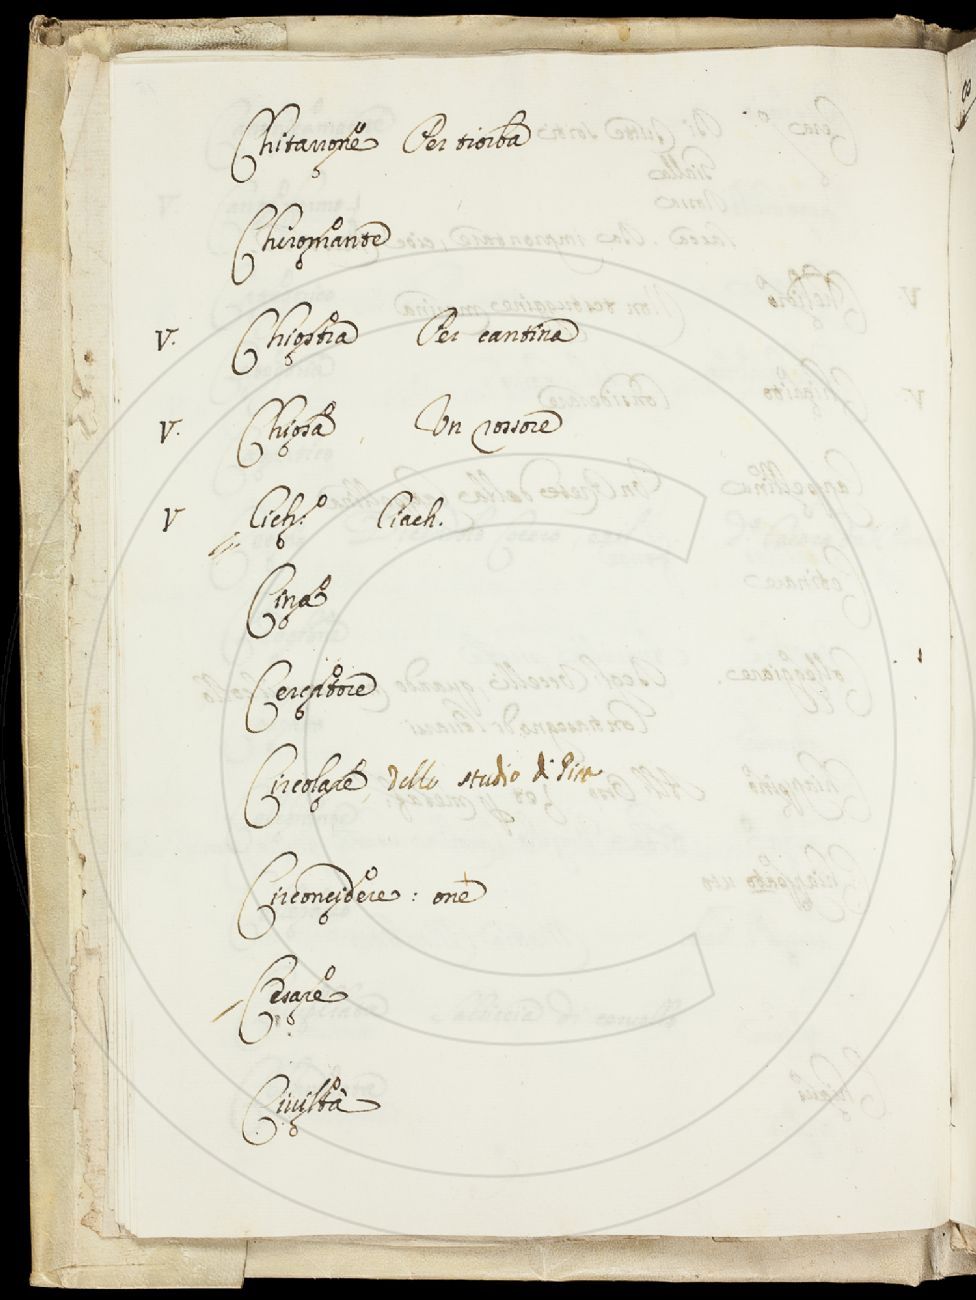 Chitarrone Per tiorba
Chiromante
V. Chiostra Per cantina
V. Chiosa Un rossore
V Cich.º Ciach.
Cina
Cercatore
Circolare dello studio di
Circoncidere : one
Cesare
Civiltà
8